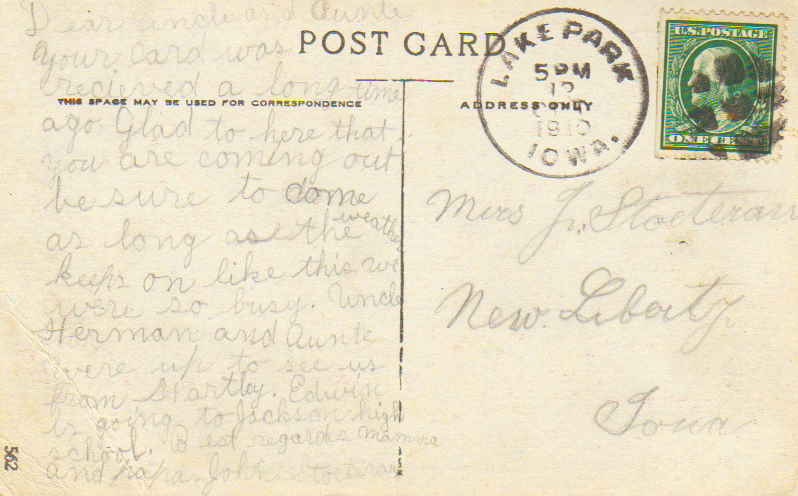 Dear uncle and Aunte
your Card was
recieved a long time
ago. Glad to here that
you are coming out
be sure to come
as long as the weather
keeps on like this we
were so busy. Uncle
Herman and Aunte
were up to see us
from Hartley. Edwin
is going to Jackson high
school. Best regardes mamma
and papa. John
POST CARD
THIS SPACE MAY BE USED FOR CORRESPONDENCE
ADDRESS ONLY
LAKE PARK
5 PM
12
1910
IOWA.
U.S. POSTAGE
ONE CENT
Mrs J. Stoeteran
New. Liberty
Iowa
562